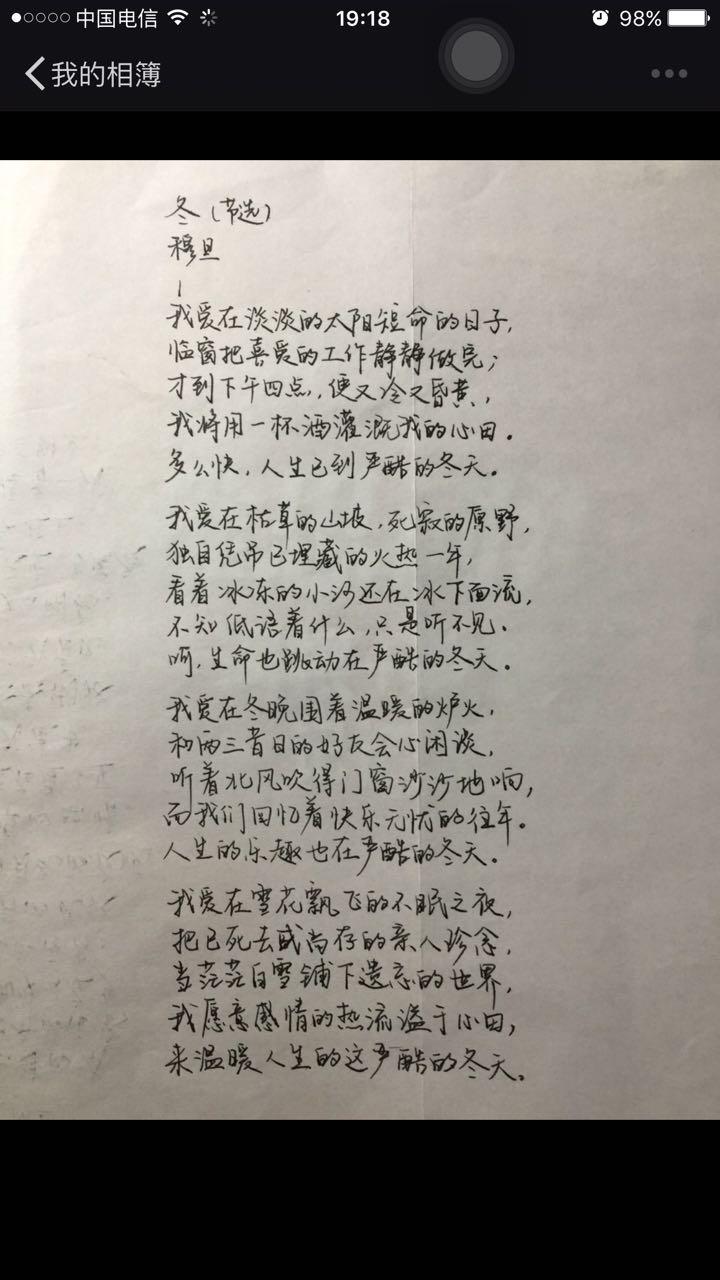 中国电信 19:18 98%
我的相簿
冬（节选）
穆旦
1
我爱在淡淡的太阳短命的日子，
临窗把喜爱的工作静静做完；
才到下午四点，便又冷又昏黄，
我将用一杯酒灌溉我的心田。
多么快，人生已到严酷的冬天。
我爱在枯草的山坡，死寂的原野，
独自凭吊已埋藏的火热一年，
看着冰冻的小河还在冰下面流，
不知低语着什么，只是听不见。
呵，生命也跳动在严酷的冬天。
我爱在冬晚围着温暖的炉火，
和两三昔日的好友会心闲谈，
听着北风吹得门窗沙沙地响，
而我们回忆着快乐无忧的往年。
人生的乐趣也在严酷的冬天。
我爱在雪花飘飞的不眠之夜，
把已死去或尚存的亲人珍念，
当茫茫白雪铺下遗忘的世界，
我愿意感情的热流溢于心田，
来温暖人生的这严酷的冬天。